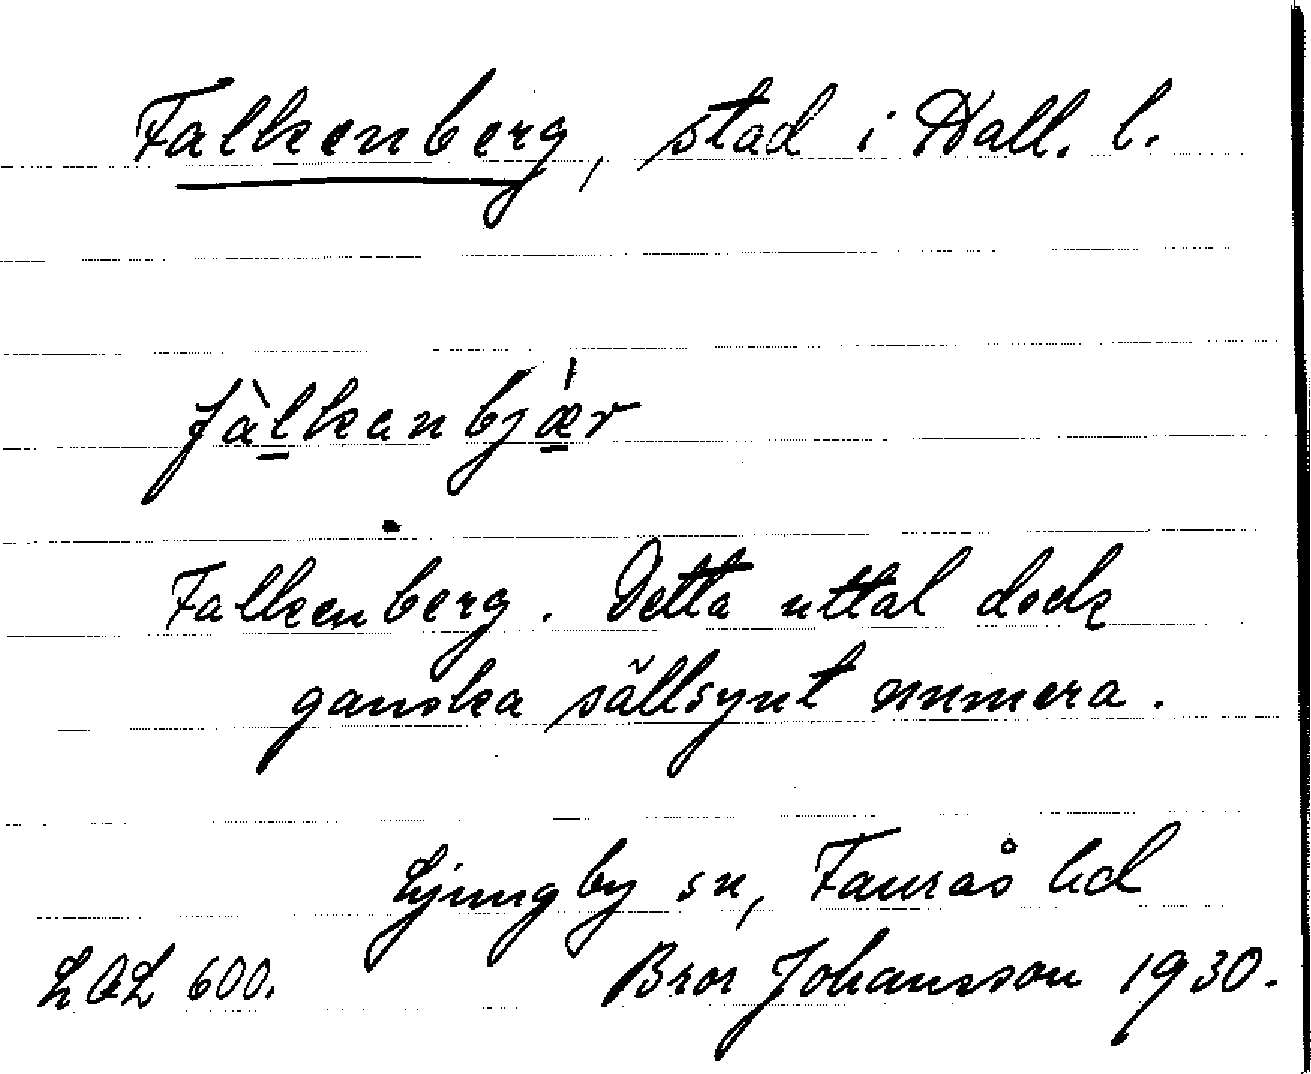 Falkenberg, stad i Hall. l.
fàlkanbjǽr
Falkenberg. Detta uttal dock
ganska sällsynt numera.
Ljungby sn, Faurås hd
LAL 600. Bror Johansson 1930.